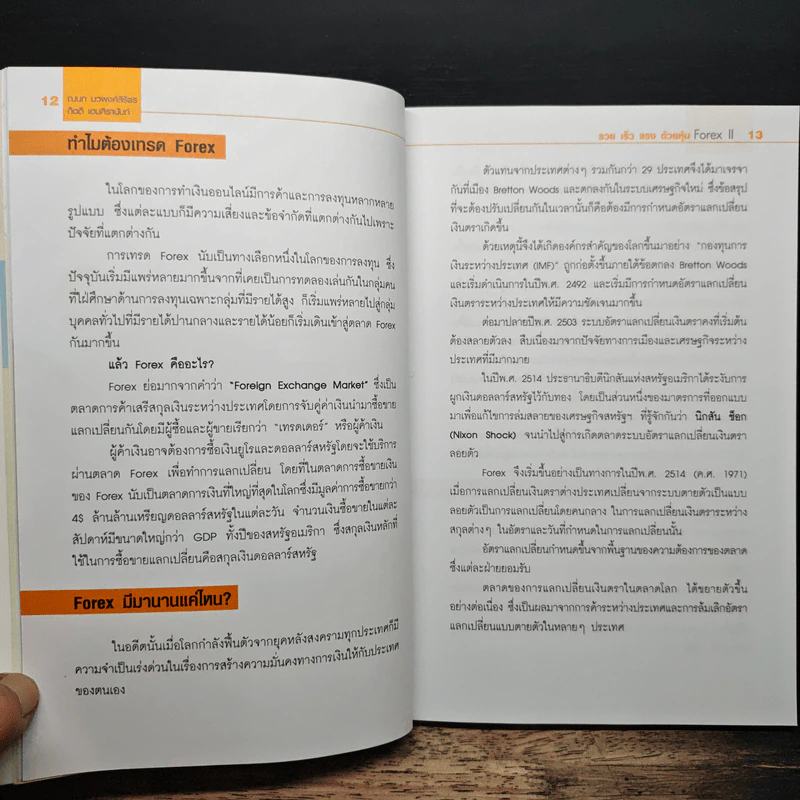 12
ณมน มวพงค์สิริพร
กิตติ เฮมศิรานันท์
ทำไมต้องเทรด Forex
ในโลกของการทำเงินออนไลน์มีการค้าและการลงทุนหลากหลาย
รูปแบบ ซึ่งแต่ละแบบก็มีความเสี่ยงและข้อจำกัดที่แตกต่างกันไปเพราะ
ปัจจัยที่แตกต่างกัน
การเทรด Forex นับเป็นทางเลือกหนึ่งในโลกของการลงทุน ซึ่ง
ปัจจุบันเริ่มมีแพร่หลายมากขึ้นจากที่เคยเป็นการทดลองเล่นกันในกลุ่มคน
ที่ใฝ่ศึกษาด้านการลงทุนเฉพาะกลุ่มที่มีรายได้สูง ก็เริ่มแพร่หลายไปสู่กลุ่ม
บุคคลทั่วไปที่มีรายได้ปานกลางและรายได้น้อยก็เริ่มเดินเข้าสู่ตลาด Forex
กันมากขึ้น
แล้ว Forex คืออะไร?
Forex ย่อมากจากคำว่า "Foreign Exchange Market" ซึ่งเป็น
ตลาดการค้าเสรีสกุลเงินระหว่างประเทศโดยการจับคู่ค่าเงินนำมาซื้อขาย
แลกเปลี่ยนกันโดยมีผู้ซื้อและผู้ขายเรียกว่า "เทรดเดอร์" หรือผู้ค้าเงิน
ผู้ค้าเงินอาจต้องการซื้อเงินยูโรและดอลลาร์สหรัฐโดยจะใช้บริการ
ผ่านตลาด Forex เพื่อทำการแลกเปลี่ยน โดยที่ในตลาดการซื้อขายเงิน
ของ Forex นับเป็นตลาดการเงินที่ใหญ่ที่สุดในโลกซึ่งมีมูลค่าการซื้อขายกว่า
4$ ล้านล้านเหรียญดอลลาร์สหรัฐในแต่ละวัน จำนวนเงินซื้อขายในแต่ละ
สัปดาห์มีขนาดใหญ่กว่า GDP ทั้งปีของสหรัฐอเมริกา ซึ่งสกุลเงินหลักที่
ใช้ในการซื้อขายแลกเปลี่ยนคือสกุลเงินดอลลาร์สหรัฐ
Forex มีมานานแค่ไหน?
ในอดีตนั้นเมื่อโลกกำลังฟื้นตัวจากยุคหลังสงครามทุกประเทศก็มี
ความจำเป็นเร่งด่วนในเรื่องการสร้างความมั่นคงทางการเงินให้กับประเทศ
ของตนเอง
รวย เร็ว แรง ด้วยหุ้น Forex II 13
ตัวแทนจากประเทศต่างๆ รวมกันกว่า 29 ประเทศจึงได้มาเจรจา
กันที่เมือง Bretton Woods และตกลงกันในระบบเศรษฐกิจใหม่ ซึ่งข้อสรุป
ที่จะต้องปรับเปลี่ยนกันในเวลานั้นก็คือต้องมีการกำหนดอัตราแลกเปลี่ยน
เงินตราเกิดขึ้น
ด้วยเหตุนี้จึงได้เกิดองค์กรสำคัญของโลกขึ้นมาอย่าง "กองทุนการ
เงินระหว่างประเทศ (IMF)" ถูกก่อตั้งขึ้นภายใต้ข้อตกลง Bretton Woods
และเริ่มดำเนินการในปีพ.ศ. 2492 และเริ่มมีการกำหนดอัตราแลกเปลี่ยน
เงินตราระหว่างประเทศให้มีความชัดเจนมากขึ้น
ต่อมาปลายปีพ.ศ. 2503 ระบบอัตราแลกเปลี่ยนเงินตราคงที่เริ่มต้น
ต้องสลายตัวลง สืบเนื่องมาจากปัจจัยทางการเมืองและเศรษฐกิจระหว่าง
ประเทศที่มีมากมาย
ในปีพ.ศ. 2514 ประธานาธิบดีนิกสันแห่งสหรัฐอเมริกาได้ระงับการ
ผูกเงินดอลลาร์สหรัฐไว้กับทอง โดยเป็นส่วนหนึ่งของมาตรการที่ออกแบบ
มาเพื่อแก้ไขการล่มสลายของเศรษฐกิจสหรัฐฯ ที่รู้จักกันว่า นิกสัน ช็อก
(Nixon Shock) จนนำไปสู่การเกิดตลาดระบบอัตราแลกเปลี่ยนเงินตรา
ลอยตัว
Forex จึงเริ่มขึ้นอย่างเป็นทางการในปีพ.ศ. 2514 (ค.ศ. 1971)
เมื่อการแลกเปลี่ยนเงินตราต่างประเทศเปลี่ยนจากระบบตายตัวเป็นแบบ
ลอยตัวเป็นการแลกเปลี่ยนโดยคนกลาง ในการแลกเปลี่ยนเงินตราระหว่าง
สกุลต่างๆ ในอัตราและวันที่กำหนดในการแลกเปลี่ยนนั้น
อัตราแลกเปลี่ยนกำหนดขึ้นจากพื้นฐานของความต้องการของตลาด
ซึ่งแต่ละฝ่ายยอมรับ
ตลาดของการแลกเปลี่ยนเงินตราในตลาดโลก ได้ขยายตัวขึ้น
อย่างต่อเนื่อง ซึ่งเป็นผลมาจากการค้าระหว่างประเทศและการล้มเลิกอัตรา
แลกเปลี่ยนแบบตายตัวในหลายๆ ประเทศ